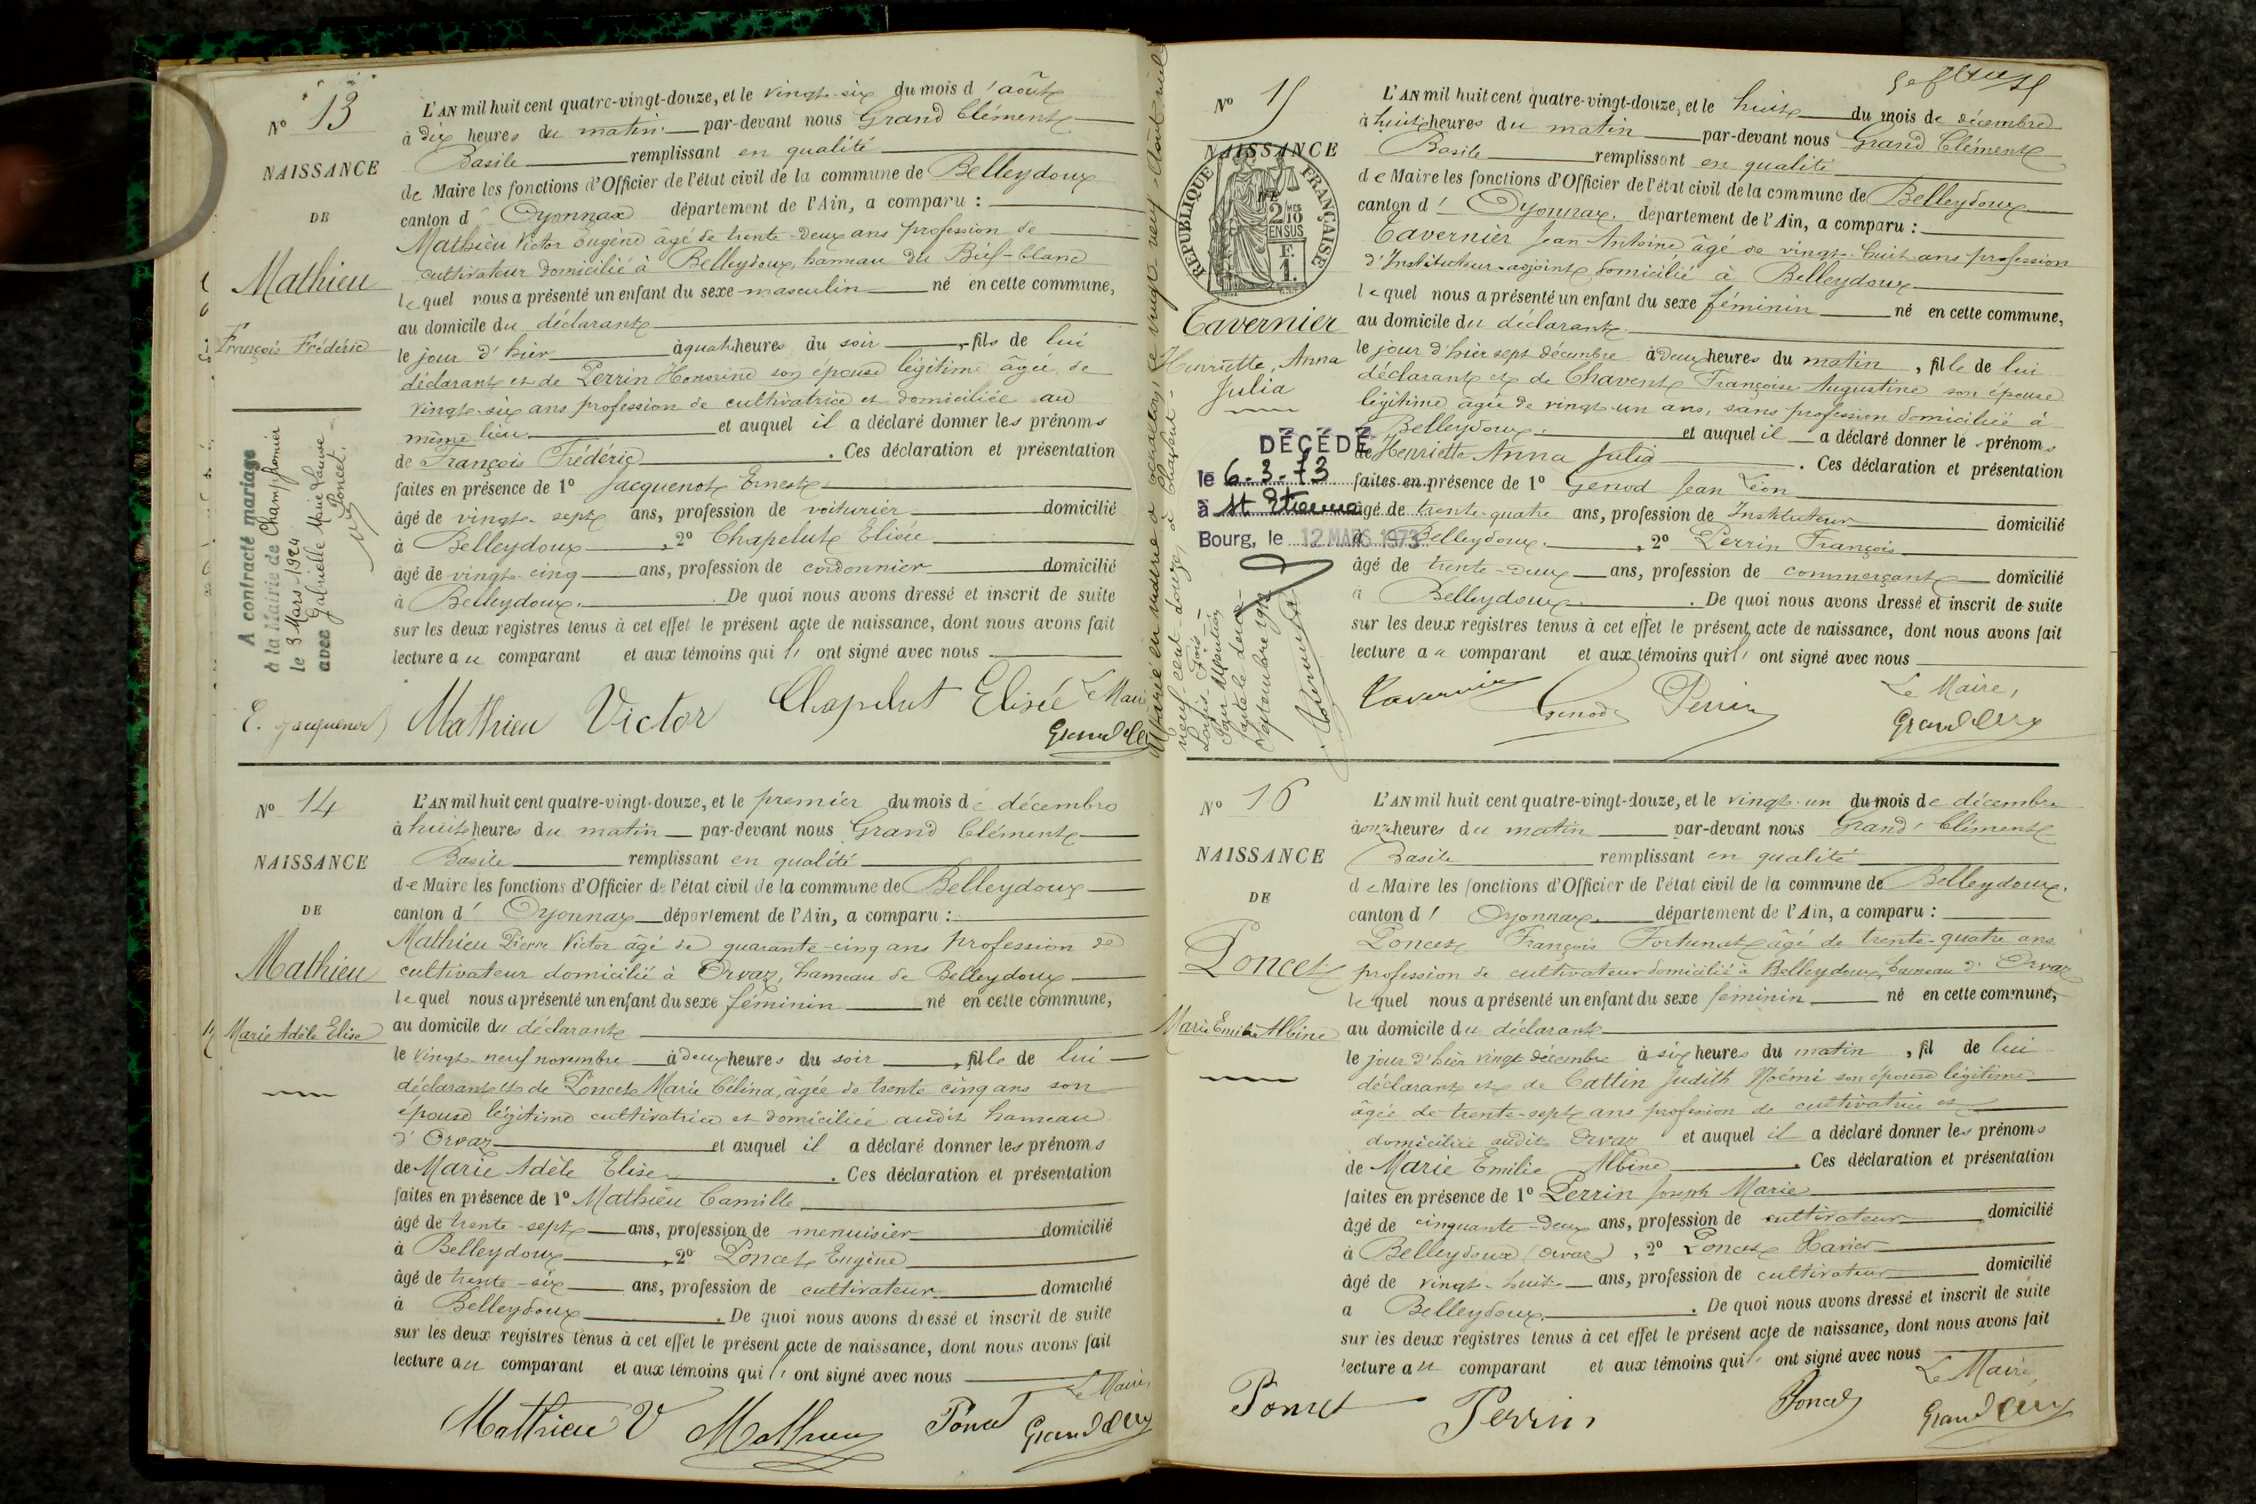 N° 13
NAISSANCE
DE
Mathieu
François Frédéric
A contracté mariage
à la Mairie de Champfromier
le 3 Mars 1924
avec Gabrielle Marie Louise
Poncet.
L'AN mil huit cent quatre-vingt-douze, et le vingt-six du mois d'août
à dix heures du matin par-devant nous Grand Clément
Basile remplissant en qualité
de Maire les fonctions d'Officier de l'état civil de la commune de Belleydoux
canton d'Oyonnax département de l'Ain, a comparu :
Mathieu Victor Eugène âgé de trente-deux ans profession de
cultivateur domicilié à Belleydoux, hameau du Bief-blanc
lequel nous a présenté un enfant du sexe masculin né en cette commune,
au domicile du déclarant
le jour d'hier à quatre heures du soir, fils de lui
déclarant et de Perrin Honorine son épouse légitime âgée de
vingt-six ans profession de cultivatrice et domiciliée au
même lieu et auquel il a déclaré donner les prénoms
de François Frédéric. Ces déclaration et présentation
faites en présence de 1° Jacquenot Ernest
âgé de vingt-sept ans, profession de voiturier domicilié
à Belleydoux, 2° Chapelut Elisée
âgé de vingt-cinq ans, profession de cordonnier domicilié
à Belleydoux. De quoi nous avons dressé et inscrit de suite
sur les deux registres tenus à cet effet le présent acte de naissance, dont nous avons fait
lecture au comparant et aux témoins qui ont signé avec nous
E. Jacquenod Mathieu Victor Chapelut Elisée Le Maire
Grand Clt
N° 14
NAISSANCE
DE
Mathieu
Marie Adèle Elise
L'AN mil huit cent quatre-vingt-douze, et le premier du mois de décembre
à huit heures du matin par-devant nous Grand Clément
Basile remplissant en qualité
de Maire les fonctions d'Officier de l'état civil de la commune de Belleydoux
canton d'Oyonnax département de l'Ain, a comparu :
Mathieu Pierre Victor âgé de quarante-cinq ans profession de
cultivateur domicilié à Orvaz, hameau de Belleydoux
lequel nous a présenté un enfant du sexe féminin né en cette commune,
au domicile du déclarant
le vingt-neuf novembre à deux heures du soir, fille de lui
déclarant et de Poncet Marie Célina, âgée de trente cinq ans son
épouse légitime cultivatrice et domiciliée audit hameau
d'Orvaz et auquel il a déclaré donner les prénoms
de Marie Adèle Elise. Ces déclaration et présentation
faites en présence de 1° Mathieu Camille
âgé de trente-sept ans, profession de menuisier domicilié
à Belleydoux, 2° Poncet Eugène
âgé de trente-six ans, profession de cultivateur domicilié
à Belleydoux. De quoi nous avons dressé et inscrit de suite
sur les deux registres tenus à cet effet le présent acte de naissance, dont nous avons fait
lecture au comparant et aux témoins qui ont signé avec nous
Le Maire,
Mathieu V Mathieu Poncet Grand Clt
N° 15
NAISSANCE
DE
RÉPUBLIQUE FRANÇAISE
2/10 EN SUS
F. 1.
Tavernier
Henriette, Anna
Julia
DÉCÉDÉ
le 6-3-73
à St Etienne
Bourg, le 12 MARS 1973
septembre 1912
L'AN mil huit cent quatre-vingt-douze, et le huit du mois de décembre
à huit heures du matin par-devant nous Grand Clément
Basile remplissant en qualité
de Maire les fonctions d'Officier de l'état civil de la commune de Belleydoux
canton d'Oyonnax. département de l'Ain, a comparu :
Tavernier Jean Antoine âgé de vingt-huit ans profession
d'Instituteur-adjoint domicilié à Belleydoux
lequel nous a présenté un enfant du sexe féminin né en cette commune,
au domicile du déclarant.
le jour d'hier sept décembre à deux heures du matin, fille de lui
déclarant et de Chavent Françoise Augustine son épouse
légitime âgée de vingt-un ans, sans profession domiciliée à
Belleydoux. et auquel il a déclaré donner les prénoms
de Henriette Anna Julia. Ces déclaration et présentation
faites en présence de 1° Genod Jean Léon
âgé de trente-quatre ans, profession de Instituteur domicilié
à Belleydoux., 2° Perrin François
âgé de trente-deux ans, profession de commerçant domicilié
à Belleydoux. De quoi nous avons dressé et inscrit de suite
sur les deux registres tenus à cet effet le présent acte de naissance, dont nous avons fait
lecture au comparant et aux témoins qui ont signé avec nous
Tavernier Genod Perrin Le Maire,
Grand Clt
N° 16
NAISSANCE
DE
Poncet
Marie Emilie Albine
L'AN mil huit cent quatre-vingt-douze, et le vingt-un du mois de décembre
à onze heures du matin par-devant nous Grand Clément
Basile remplissant en qualité
de Maire les fonctions d'Officier de l'état civil de la commune de Belleydoux.
canton d'Oyonnax. département de l'Ain, a comparu :
Poncet François Fortunat âgé de trente-quatre ans
profession de cultivateur domicilié à Belleydoux, hameau d'Orvaz
lequel nous a présenté un enfant du sexe féminin né en cette commune,
au domicile du déclarant
le jour d'hier vingt décembre à six heures du matin, fil de lui
déclarant et de Cattin Judith Noémi son épouse légitime
âgée de trente-sept ans profession de cultivatrice et
domiciliée audit Orvaz et auquel il a déclaré donner les prénoms
de Marie Emilie Albine. Ces déclaration et présentation
faites en présence de 1° Perrin Joseph Marie
âgé de cinquante-deux ans, profession de cultivateur domicilié
à Belleydoux (Orvaz), 2° Poncet Xavier
âgé de vingt-huit ans, profession de cultivateur domicilié
à Belleydoux. De quoi nous avons dressé et inscrit de suite
sur les deux registres tenus à cet effet le présent acte de naissance, dont nous avons fait
lecture au comparant et aux témoins qui ont signé avec nous
Le Maire,
Poncet Perrin Poncet Grand Clt